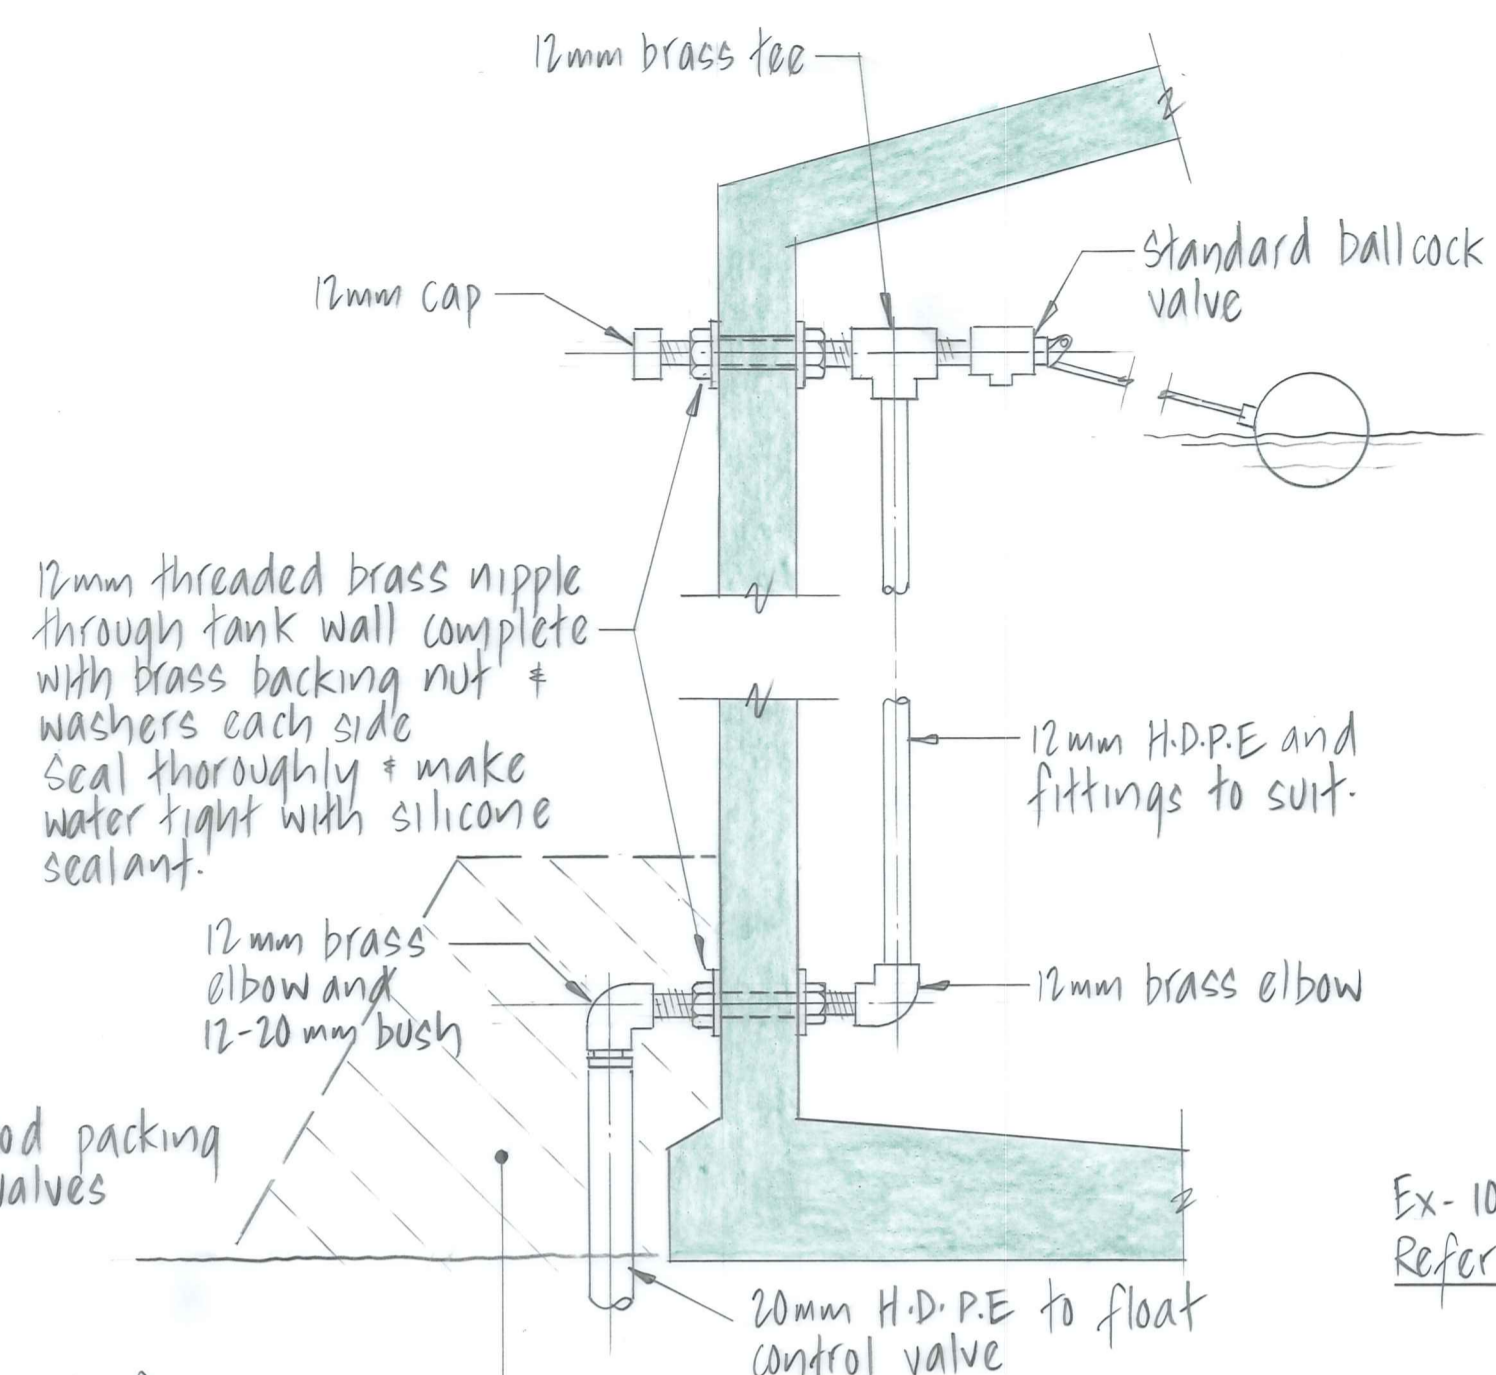 12mm brass tee
standard ballcock
valve
12mm cap
12mm threaded brass nipple
through tank wall complete
with brass backing nut &
washers each side
seal thoroughly & make
water tight with silicone
sealant.
12mm H.D.P.E and
fittings to suit.
12mm brass
elbow and
12-20mm bush
12mm brass elbow
od packing
valves
Ex-10
Refer
20mm H.D.P.E to float
control valve